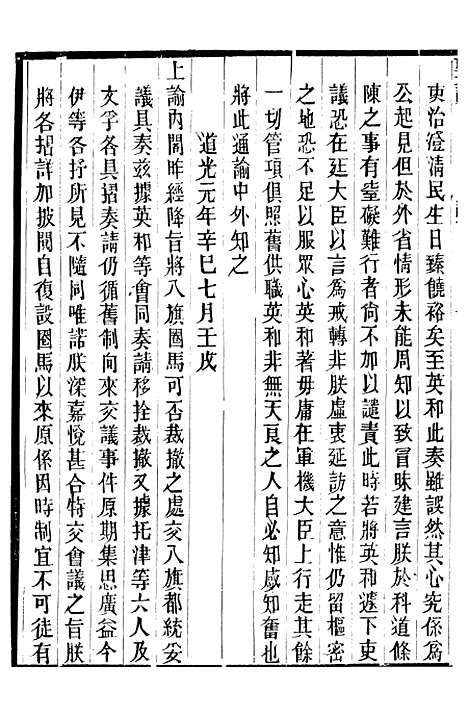 吏治澄清民生日臻饒裕矣至英和此奏雖誤然其心究係為
公起見於外省情形未能周知以致冒昧建言朕於科道條
陳之事有窒礙難行者尚不加以譴責此時若將英和遽下吏
議恐在廷大臣以言為戒轉非朕虛衷延訪之意惟仍留樞密
之地恐不足以服眾心英和著毋庸在軍機大臣上行走其餘
一切管項俱照舊供職英和非無天良之人自必知感知奮也
將此通諭中外知之
道光元年辛巳七月壬戌
上諭內閣昨經降旨將八旗圈馬可否裁撤之處交八旗都統妥
議具奏茲據英和等會同奏請移拴裁撤又據托津等六人及
文孚各具摺奏請仍循舊制向來交議事件原期集思廣益今
伊等各抒所見不隨同唯諾朕深嘉悅甚合特交會議之旨朕
將各摺詳加披閱自復設圈馬以來原係因時制宜不可徒有